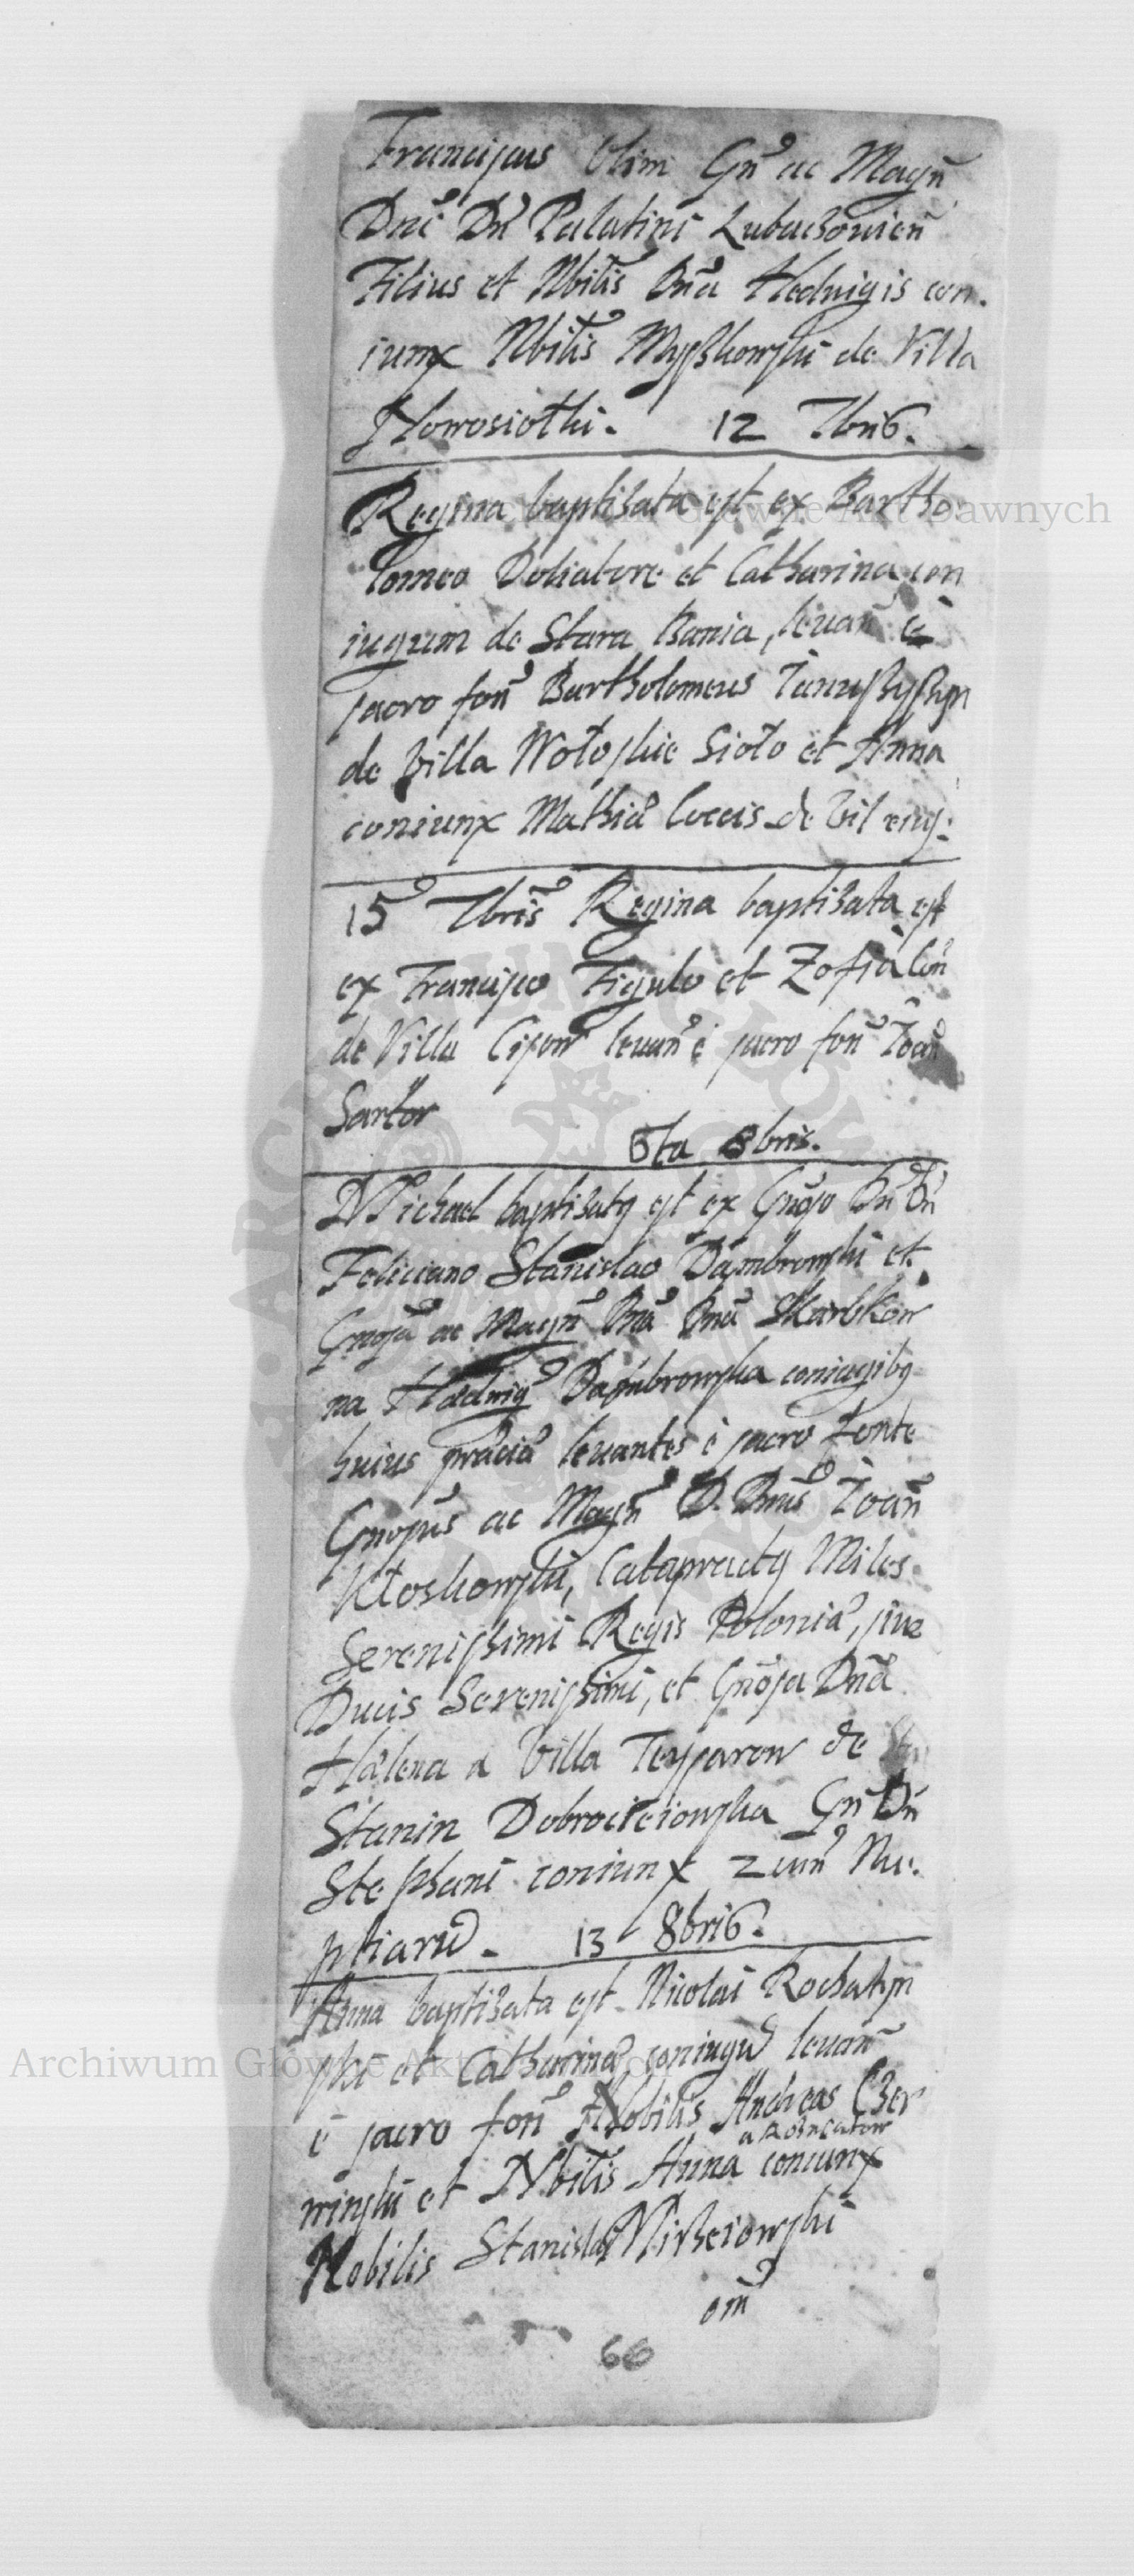 Franciscus Olim Gn̄ ac Magn̄
Dn̄i Dn̄ Palatini Lubaczowien̄
Filius et Nbilis Dn̄a Hedvigis con-
iunx Nbilis Myszkowski de Villa
Nowosiołki. 12 7bris.
Regina baptisata est ex Bartho
lomeo Doliatore et Catharina con
iugum de Stara Bania, levan̄ è
sacro fon̄
Bartholomeus
de Villa Wołoskie Sioło et Anna
coniunx Mathiæ Cocis de Vil eiusꝫ
15 7bris Regina baptisata est
ex Francisco Figulo et Zofia Con̄
de Villa Cisow levan̄ è sacro fon̄ Joan̄
Sartor
6ta 8bris.
Michael baptisatꝰ est ex Gn̄oso Dn̄ Dn̄
Feliciano Stanislao Dąmbrowski et
Gn̄osa ac Magn̄ Dn̄a Dn̄a Skarbkow
na Hædwig Dąmbrowska coniugibꝰ
huius levantes è sacro Fonte
Gnosus ac Magn̄ D. Dn̄us Joan̄
Kłoskowski, Catapractꝰ Miles
Serenissimi Regis Poloniæ, sive
Ducis Serenissimi, et Gn̄osa Dn̄a
Hælena a Villa Teysarow de
Stanin Dobrocieiowska Gn̄ Dn̄
Stephani coniunx 2 Nu-
ptiarū. 13 8bris.
Anna baptisata est Nicolai Rochatyn
ski et Catharinæ coniugū levan̄
è sacro fon̄ Nobilis Andreas Czer
a Rosncatow
minski et Nbilis Anna coniunx
Nobilis Stanislai Miszeiowski
om̄
66
Archiwum Główne Akt Dawnych
Archiwum Główne Akt Dawnych